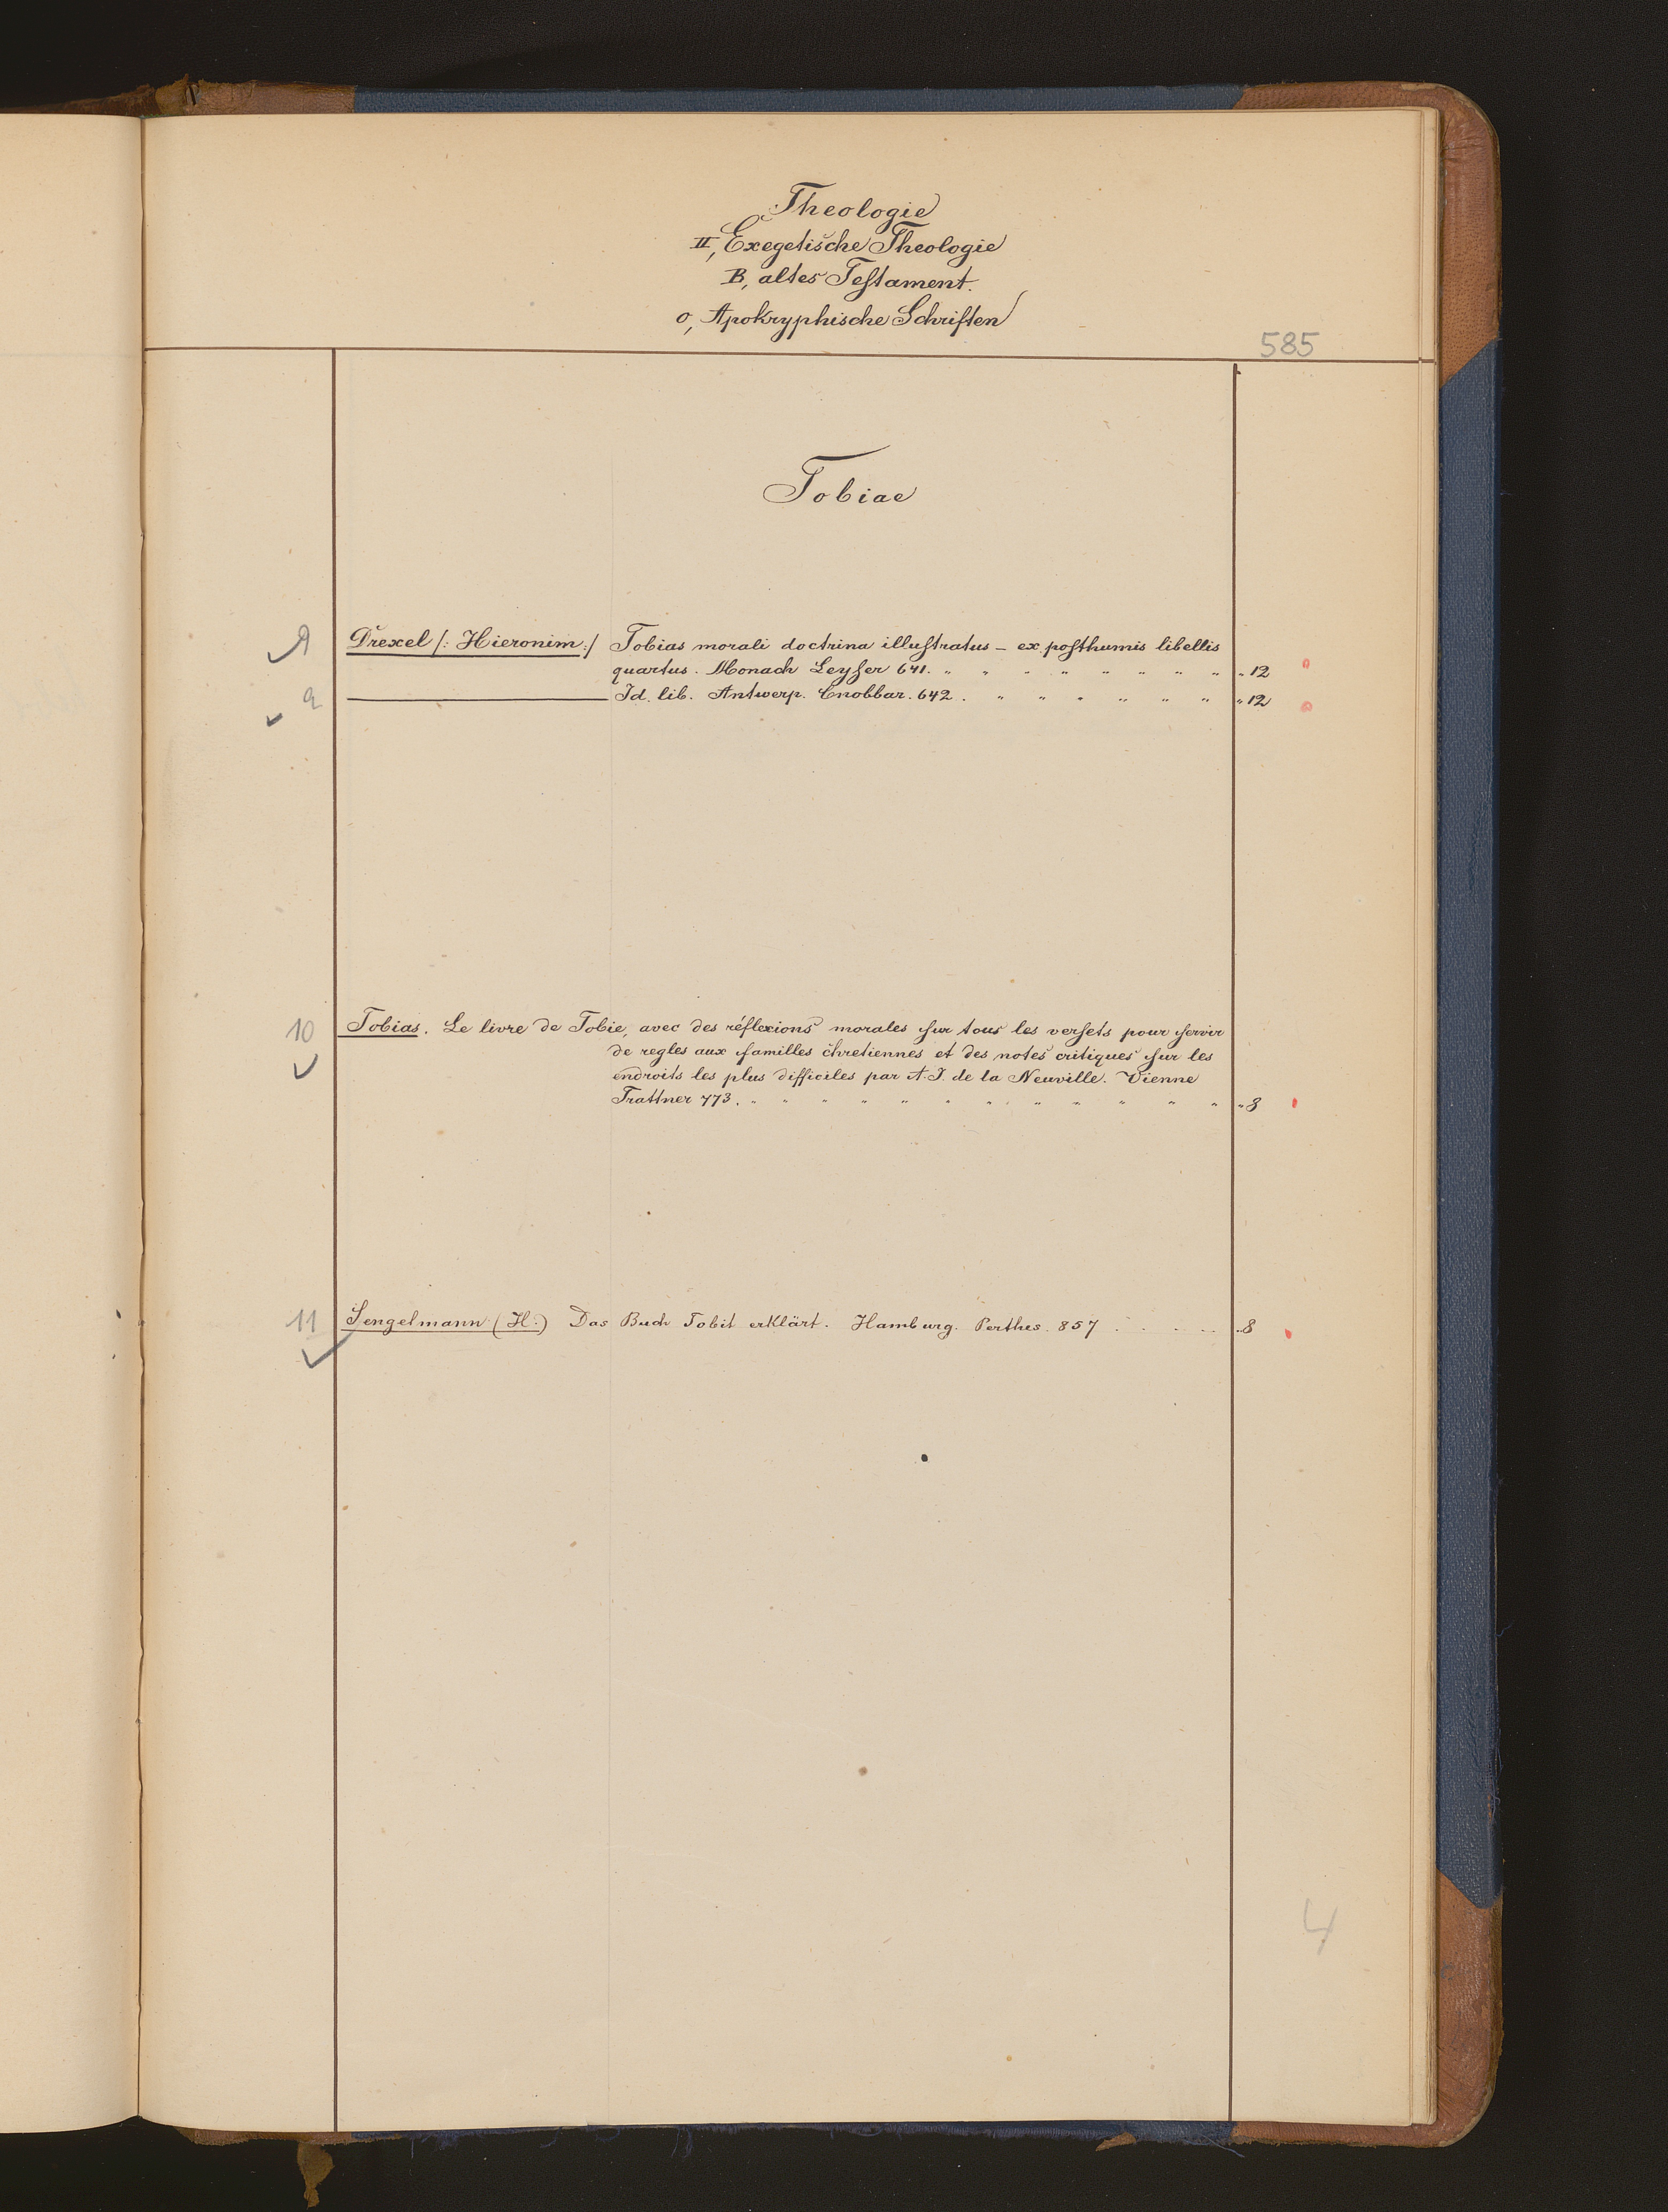 Theologie
II, Exegetische Theologie
B, altes Testament.
o, Apokryphische Schriften
585
Tobiae
Drexel /: Hieronim :/ Tobias morali doctrina illustratus – ex posthumis libellis
quartus. Monach Leyser 641. " " " " " " " " " 12
9 ——— Id. lib. Antwerp. Cnobbar. 642. " " " " " " " 12
10 Tobias. Le livre de Tobie, avec des réflexions morales sur tous les versets pour servir
de regles aux familles chretiennes et des notes critiques sur les
endroits les plus difficiles par A. J. de la Neuville. Vienne
Trattner 773. " " " " " " " " " " " " " 8
11 Sengelmann (H.) Das Buch Tobit erklärt. Hamburg. Perthes. 857 . . . . . . 8
4